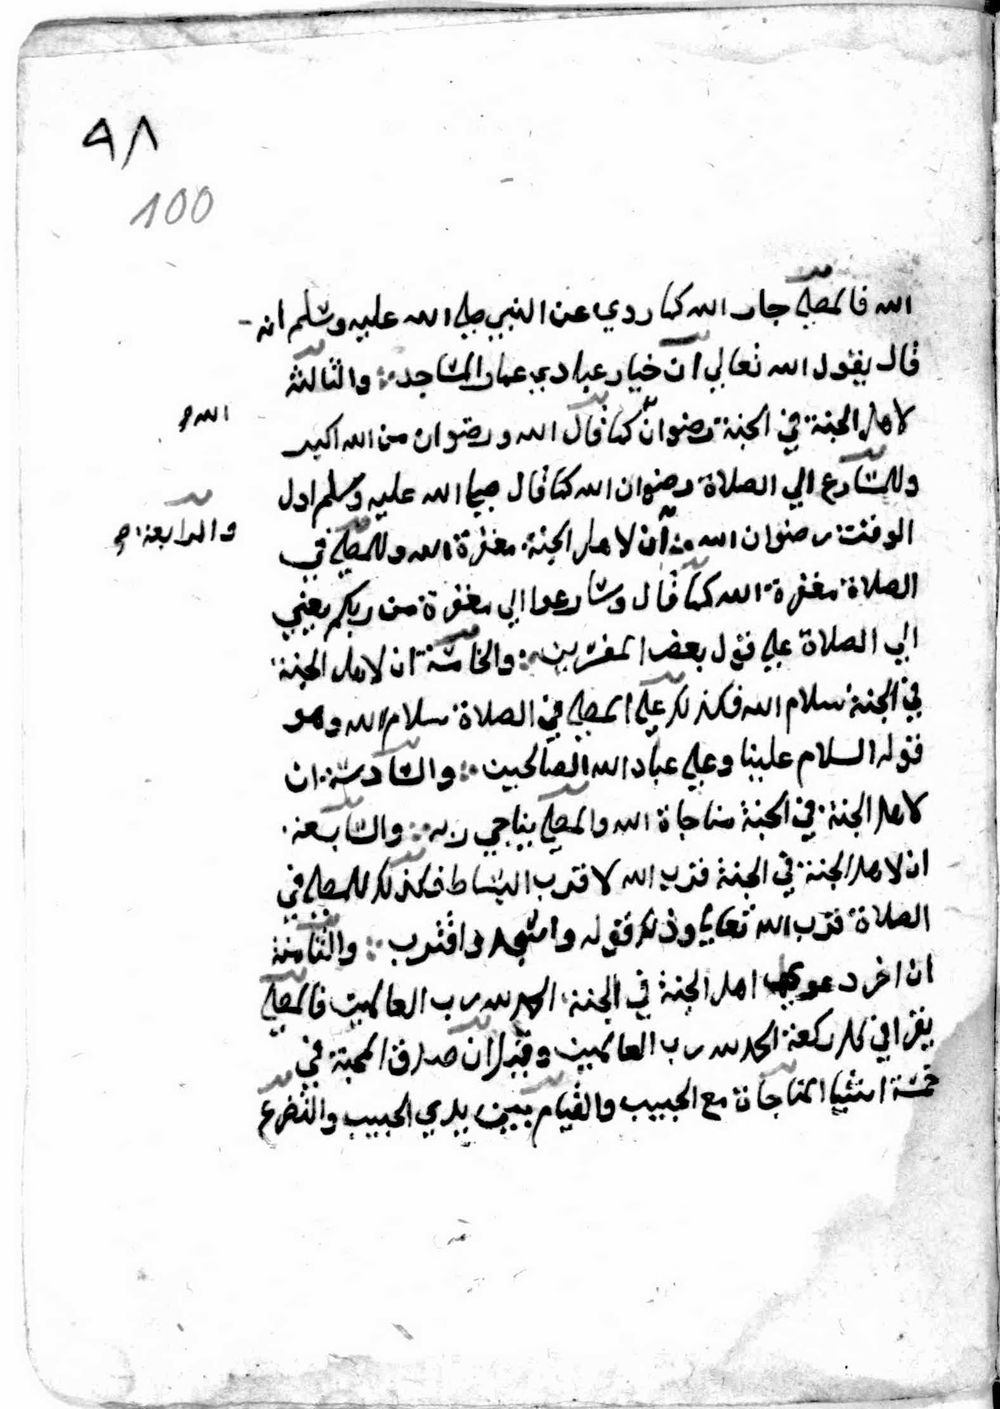 ٩٨
100
الله فالمصلي جار الله كما روي عن النبي صلي الله عليه وسلم انه
قال يقول الله تعالي ان خيار عبادي عمار المساجد والثالثة
لاهل الجنة في الجنة رضوان كما قال الله ورضوان من الله اكبر
الله
وللسارع الي الصلاة رضوان الله كما قال صلي الله عليه وسلم اول
الوقت رضوان الله ان لاهل الجنة مغفرة الله وللمصلي في
والرابعة
الصلاة مغفرة الله كما قال وسارعوا الي مغفرة من ربكم يعني
الي الصلاة علي قول بعض المفسرين والخامسة ان لاهل الجنة
في الجنة سلام الله فكذلك علي المصلي في الصلاة سلام الله وهو
قوله السلام علينا وعلي عباد الله الصالحين والسادسة ان
لاهل الجنة في الجنة مناجاة الله والمصلي يناجي ربه والسابعة
ان لاهل الجنة في الجنة قرب الله لا قرب البساط فكذلك للمصلي في
الصلاة قرب الله تعالي وذلك قوله واسجد واقترب والثامنة
ان اخر دعوي اهل الجنة في الجنة الحمد لله رب العالمين فالمصلي
يقرا في كل ركعة الحمد لله رب العالمين وقيل ان صدق المحبة في
خمسة اشيا المناجاة مع الحبيب والقيام بين يدي الحبيب والتضرع